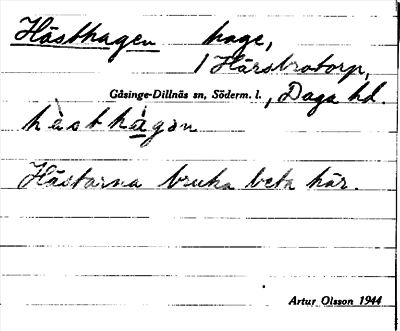 Hästhagen hage,
/ Härsbrotorp,
Gåsinge-Dillnäs sn, Söderm. l., Daga hd.
hàsthágən
Hästarna bruka beta här.
Artur Olsson 1944